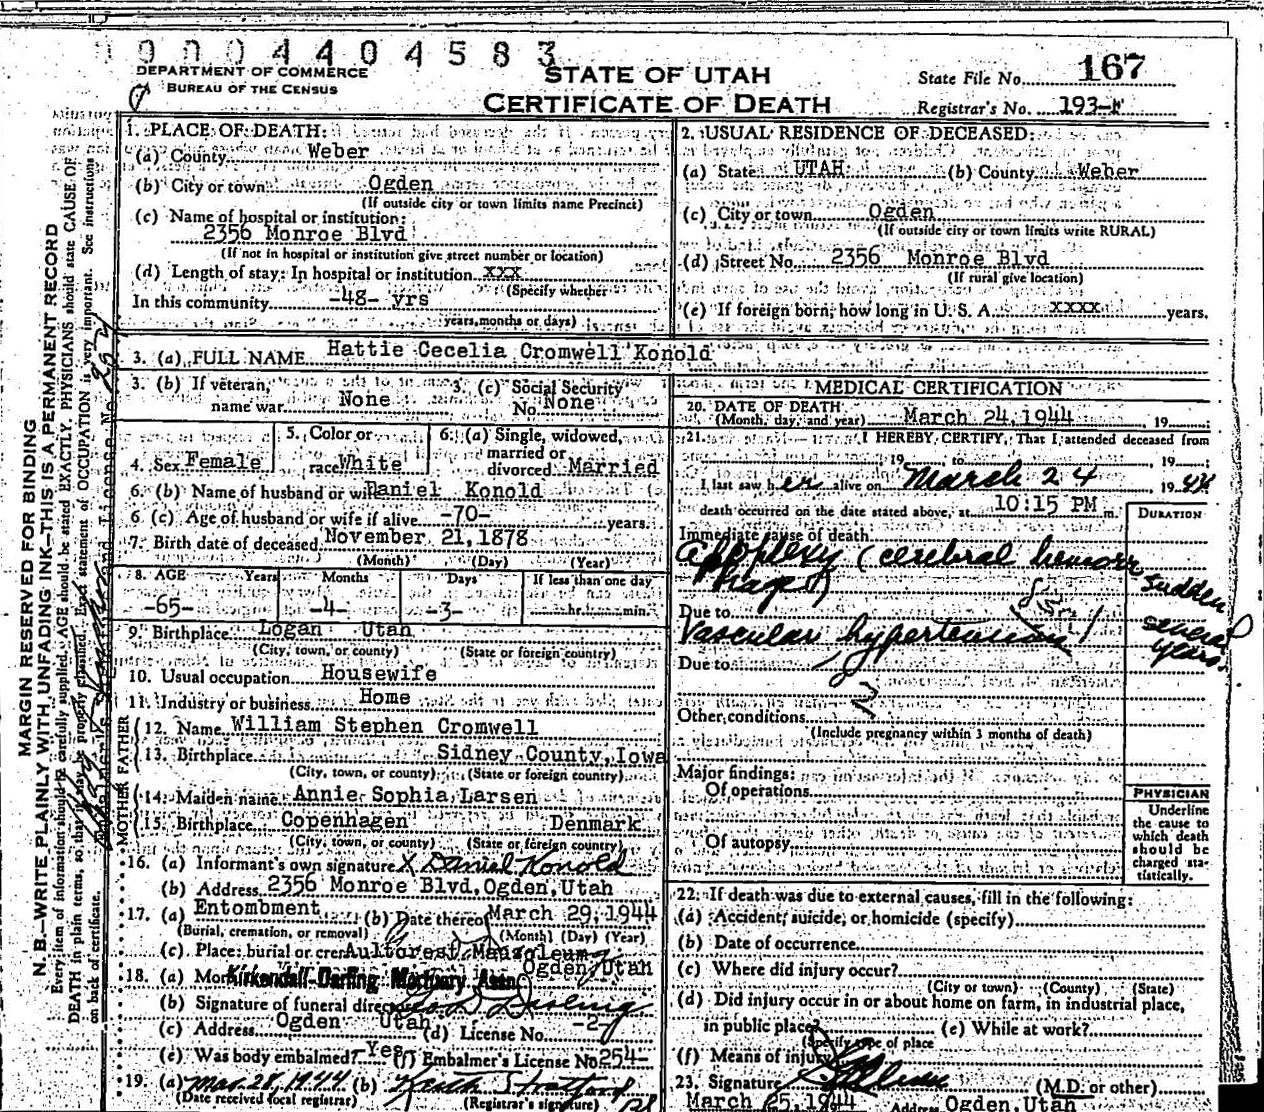 9 0 0 4 4 0 4 5 8 3
DEPARTMENT OF COMMERCE
BUREAU OF THE CENSUS
STATE OF UTAH
CERTIFICATE OF DEATH
State File No. 167
Registrar's No. 193-
MARGIN RESERVED FOR BINDING
N. B.—WRITE PLAINLY WITH UNFADING INK—THIS IS A PERMANENT RECORD
Every item of information should be carefully supplied. AGE should be stated EXACTLY. PHYSICIANS should state CAUSE OF
DEATH in plain terms, so that it may be properly classified. Exact statement of OCCUPATION is very important. See instructions
on back of certificate.
1. PLACE OF DEATH:
(a) County Weber
(b) City or town Ogden
(If outside city or town limits name Precinct)
(c) Name of hospital or institution:
2356 Monroe Blvd
(If not in hospital or institution give street number or location)
(d) Length of stay: In hospital or institution xxx
(Specify whether
In this community -48- yrs
years, months or days)
2. USUAL RESIDENCE OF DECEASED:
(a) State UTAH (b) County Weber
(c) City or town Ogden
(If outside city or town limits write RURAL)
(d) Street No. 2356 Monroe Blvd
(If rural give location)
(e) If foreign born, how long in U. S. A. xxxx years.
3. (a) FULL NAME Hattie Cecelia Cromwell Konold
3. (b) If veteran, name war None
3. (c) Social Security No. None
4. Sex Female
5. Color or race White
6. (a) Single, widowed, married or divorced Married
6. (b) Name of husband or wife Daniel Konold
6 (c) Age of husband or wife if alive -70- years.
7. Birth date of deceased November 21, 1878
(Month) (Day) (Year)
8. AGE Years Months Days If less than one day
-65- -4- -3- hr. min.
9. Birthplace Logan Utah
(City, town, or county) (State or foreign country)
10. Usual occupation Housewife
11. Industry or business Home
FATHER
12. Name William Stephen Cromwell
13. Birthplace Sidney County, Iowa
(City, town, or county) (State or foreign country)
MOTHER
14. Maiden name Annie Sophia Larsen
15. Birthplace Copenhagen Denmark
(City, town, or county) (State or foreign country)
16. (a) Informant's own signature X Daniel Konold
(b) Address 2356 Monroe Blvd, Ogden, Utah
17. (a) Entombment (b) Date thereof March 29, 1944
(Burial, cremation, or removal) (Month) (Day) (Year)
(c) Place: burial or cre Aultorest Mausoleum
Ogden, Utah
18. (a) Mor Kirkendall-Darling Mortuary Assn
(b) Signature of funeral direc
(c) Address Ogden Utah (d) License No. -2-
(e) Was body embalmed? Yes (f) Embalmer's License No 254-
19. (a) Mar. 28, 1944 (b) Keith Stratford
(Date received local registrar) (Registrar's signature)
MEDICAL CERTIFICATION
20. DATE OF DEATH
(Month, day, and year) March 24, 1944 19
21. I HEREBY CERTIFY, That I attended deceased from
, 19 , to , 19 ,
I last saw her alive on March 24 1944
death occurred on the date stated above, at 10:15 PM m.
DURATION
Immediate cause of death
Apoplexy (cerebral hemorr
hage) sudden
Due to
Vascular hypertension several years.
Due to
Other conditions
(Include pregnancy within 3 months of death)
Major findings:
Of operations
Of autopsy
PHYSICIAN
Underline
the cause to
which death
should be
charged sta-
tistically.
22. If death was due to external causes, fill in the following:
(a) Accident, suicide, or homicide (specify)
(b) Date of occurrence
(c) Where did injury occur?
(City or town) (County) (State)
(d) Did injury occur in or about home on farm, in industrial place,
in public place? (e) While at work?
(Specify type of place
(f) Means of injury
23. Signature (M.D. or other)
March 25, 1944 Address Ogden, Utah